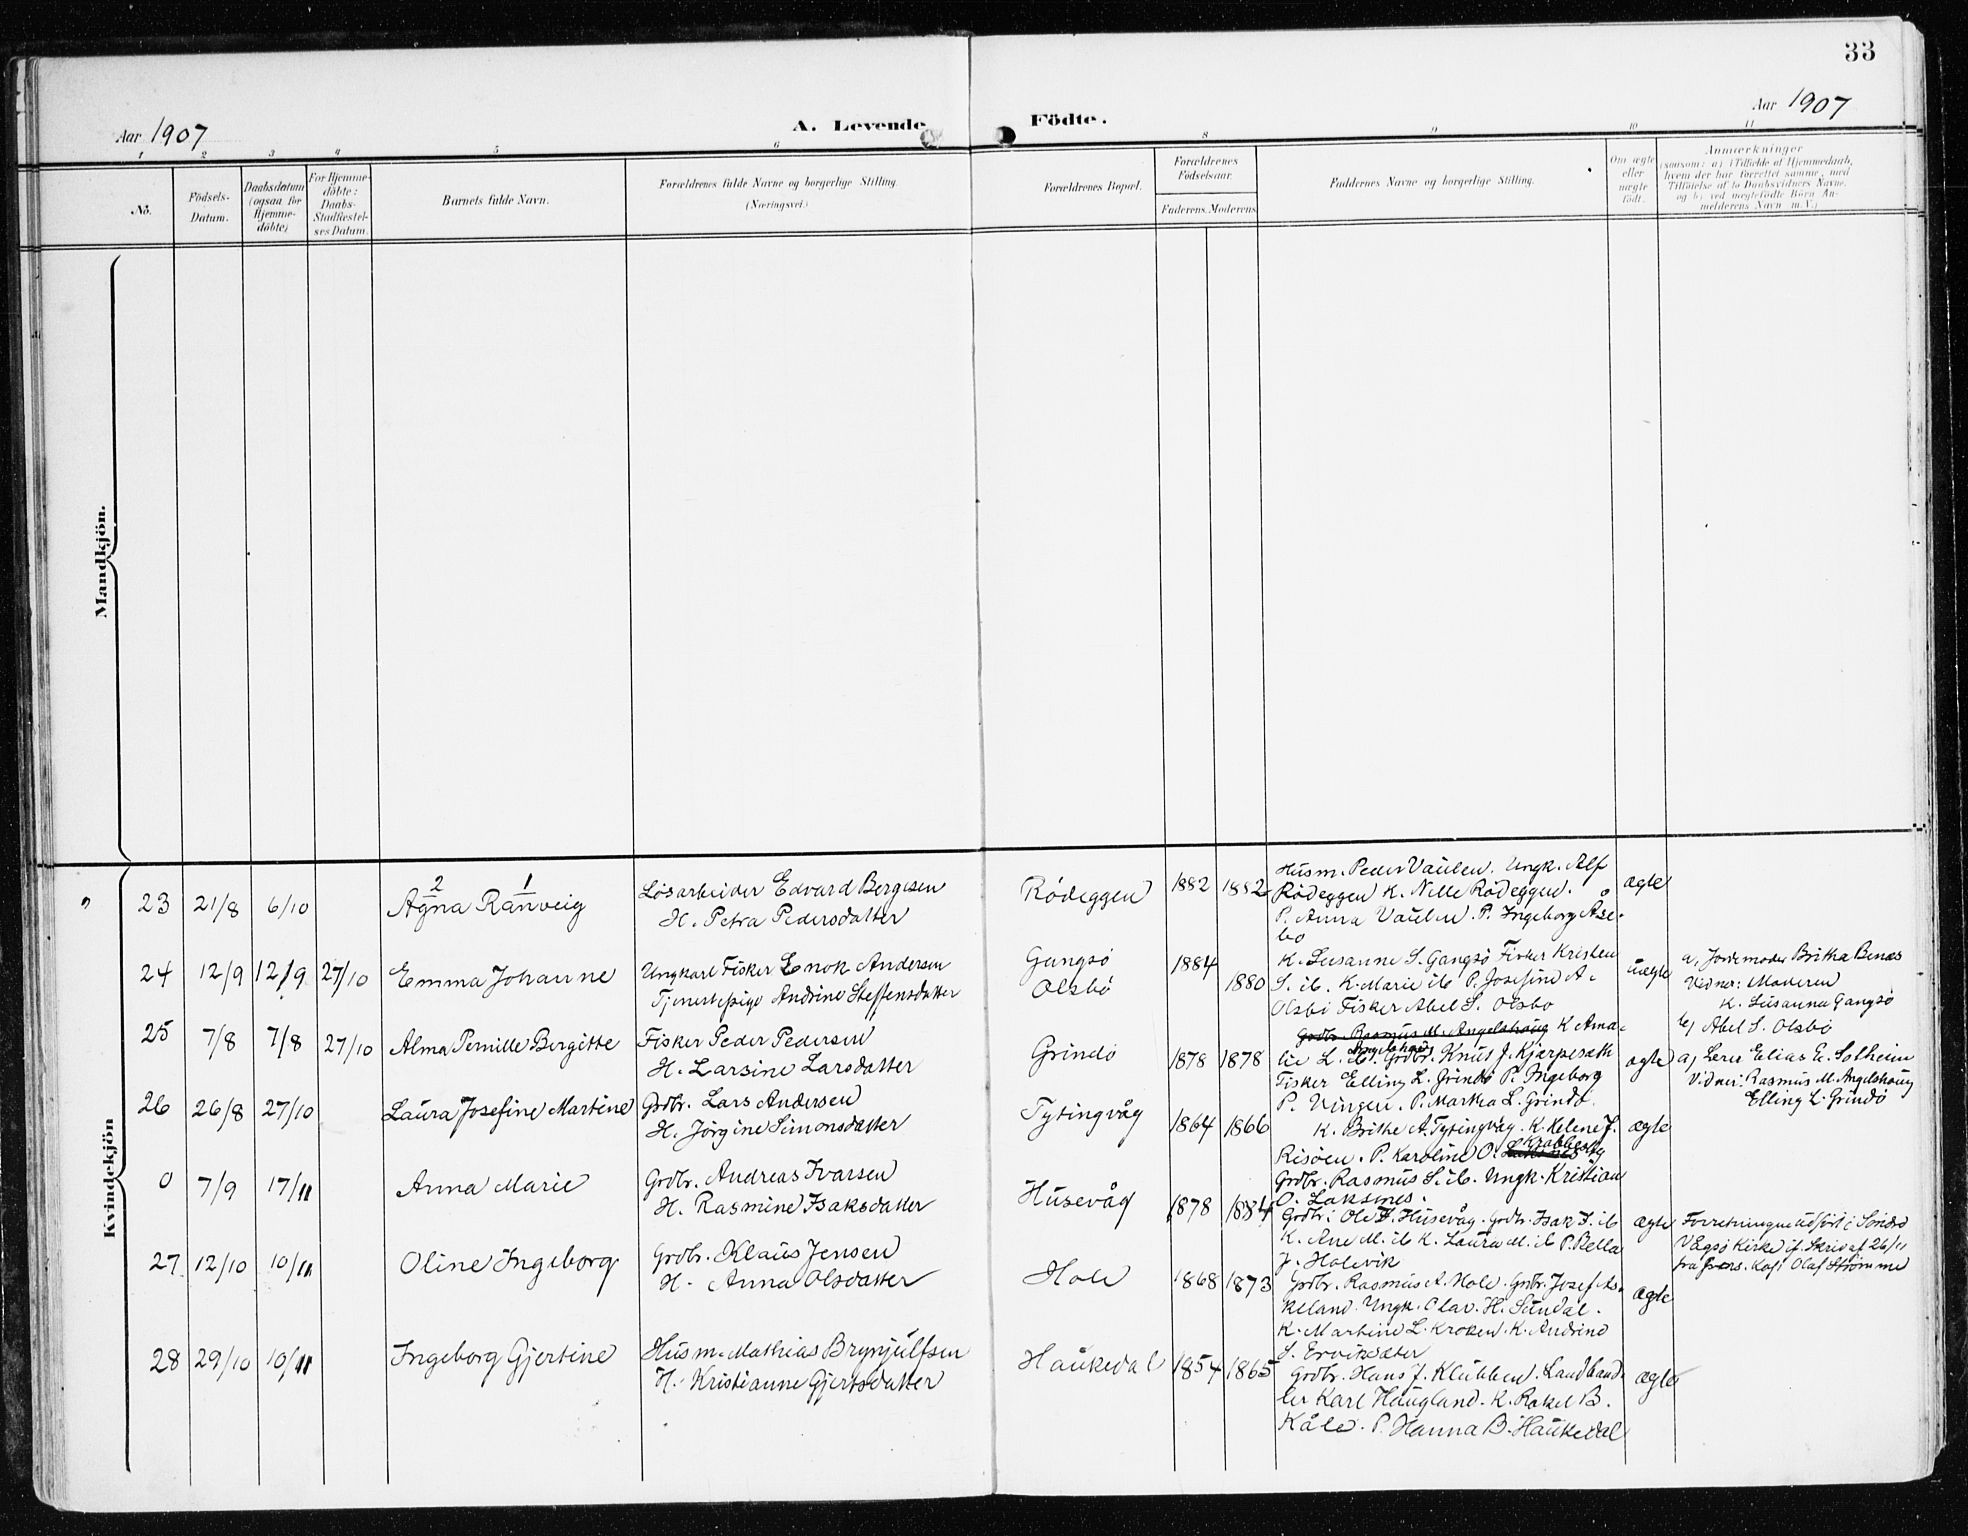 33
Aar 1907
A. Levende Födte.
Aar 1907
1 2 3 4 5 6 8 9 10 11
No.
Födsels-Datum.
Daabsdatum (ogsaa for Hjemme-döbte)
For Hjemme-döbte: Daabs-Stadfæstel-ses Datum.
Barnets fulde Navn.
Forældrenes fulde Navne og borgerlige Stilling.
(Næringsvei.)
Forældrenes Bopæl.
Forældrenes Födselsaar.
Faderens. Moderens.
Faddernes Navne og borgerlige Stilling.
Om ægte eller uægte födt.
Anmærkninger
(saasom: a) i Tilfælde af Hjemmedaab,
hvem der har forrettet samme, med
Tilföielse af to Daabsvidners Navne.
og b) ved uægtefödte Börn An-
melderens Navn m.V.)
Mandkjön.
Kvindekjön
23 21/8 6/10
2 1
Agna Ranveig
Løsarbeider Edvard Bergesen
H. Petra Pedersdatter
Rødeggen
1882 1882
Husm. Peder Vaulen. Ungk. Alf
Rødeggen K. Nille Rødeggen.
P. Anna Vaulen. P. Ingeborg Åse-
bo
ægte
24 12/9 12/9 27/10
Emma Johanne
Ungkarl Fisker Enok Andersen
Tjenestepige Andrine Steffensdatter
Gangsø
Olsbø
1884 1880
K. Susanne S. Gangsø Fisker Kristen
S. ib. K. Marie ib P. Josefine A.
Olsbø Fisker Abel S. Olsbø
uægte
a, Jordemoder Britha Benæs
Vidner: Moderen
K. Susanna Gangsø
b, Abel S. Olsbø
25 7/8 7/8 27/10
Alma Pernille Bergitte
Fisker Peder Pedersen
H. Larsine Larsdatter
Grindø
1878 1878
Grdbr. Rasmus M. Angelshaug K Ama-
lie L. Angelshaug Grdbr. Knus J. Kjærpeseth
Fisker Elling L. Grindø P. Ingeborg
P. Vingen. P. Martha L. Grindø.
ægte
a, Lerer Elias E. Solheim
Vidner: Rasmus M. Angelshaug
Elling L. Grindø
26 26/8 27/10
Laura Josefine Martine
Grdbr. Lars Andersen
H. Jørgine Simonsdatter
Tytingvåg
1864 1866
K. Brithe A. Tytingvåg. K. Helene J.
Risøen. P. Karoline O. Krabbestig
Grdbr. Rasmus S. ib. Ungk. Kristian
O. Laksnes.
ægte
0 7/9 17/11
Anna Marie
Grdbr. Andreas Ivarsen
H. Rasmine Isaksdatter
Husevåg
1878 1884
Grdbr. Ole I. Husevåg. Grdbr. Isak I. ib
K. Ane M. ib K. Laura M. ib P. Bella
J. Holevik
ægte
Forretningen udført i Søndre
Vågsø Kirke if. Skriv af 26/11
fra pers. Kap. Olaf Strømme
27 12/10 10/11
Oline Ingeborg
Grdbr. Klaus Jensen
H. Anna Olsdatter
Hole
1868 1873
Grdbr. Rasmus A. Hole. Grdbr. Josef As-
keland. Ungk. Olav. H. Sundal.
K. Martine L. Kroken. K. Andrine
S. Erviksæter
ægte
28 29/10 10/11
Ingeborg Gjertine
Husm. Mathias Brynjulfsen
H. Kristianne Gjertsdatter
Haukedal
1854 1865
Grdbr. Hans J. Klubben. Landhand-
ler Karl Haugland. K. Rakel B.
Kåle. P. Hanna B. Haukedal
ægte